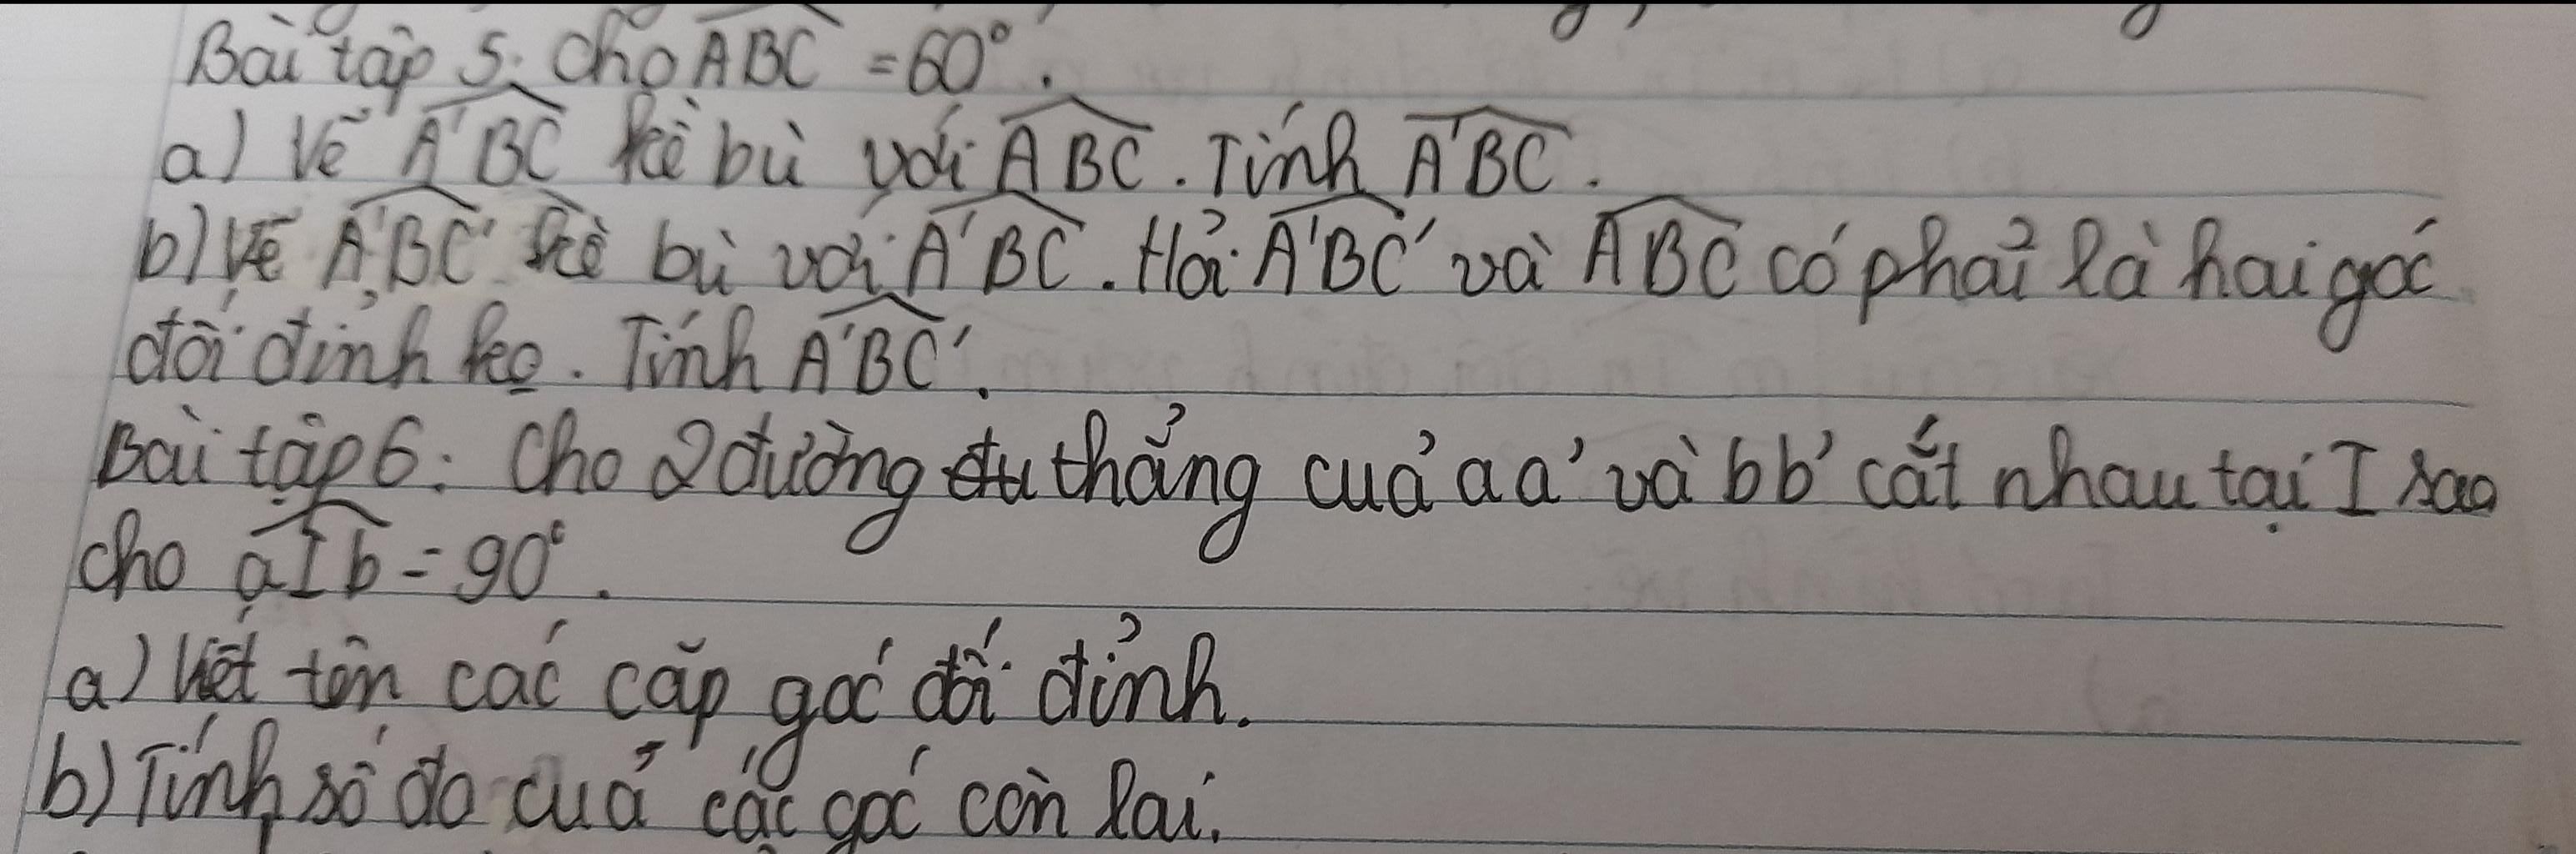 Bài tập 5: Cho ABC = 60°.
a) Vẽ A'BC kề bù với ABC. Tính A'BC.
b) Vẽ A'BC' kề bù với A'BC. Hỏi A'BC' và ABC có phải là hai góc
đối đỉnh ko. Tính A'BC'.
Bài tập 6: Cho 2 đường thẳng của aa' và bb' cắt nhau tại I sao
cho aIb = 90°.
a) Viết tên các cặp góc đối đỉnh.
b) Tính số đo của các góc còn lại.